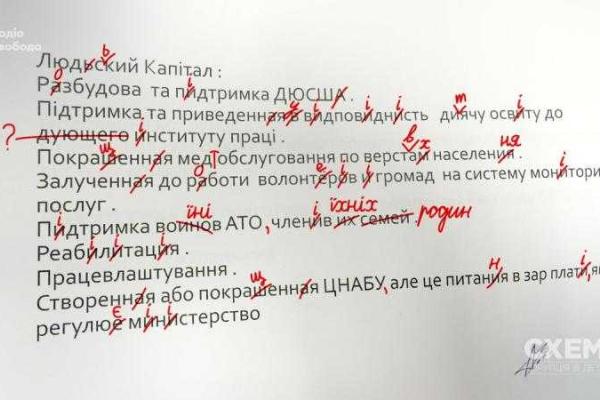 Людьский Капітал :
Разбудова та підтримка ДЮСША .
Підтримка та приведенная в видповидность диячу освиту до
? дующего институту праці .
Покрашенная мед обслуговання по верстам населения .
Залученная до работи волонтеров и громад на систему монитори
послуг .
Пидтримка воинов АТО, членив их семей . родин
їні їхніх
Реабилитация .
Працевлаштування .
Створенная або покрашенная ЦНАБУ, але це питания в зар плати, як
регулюе министерство
СХЕМ